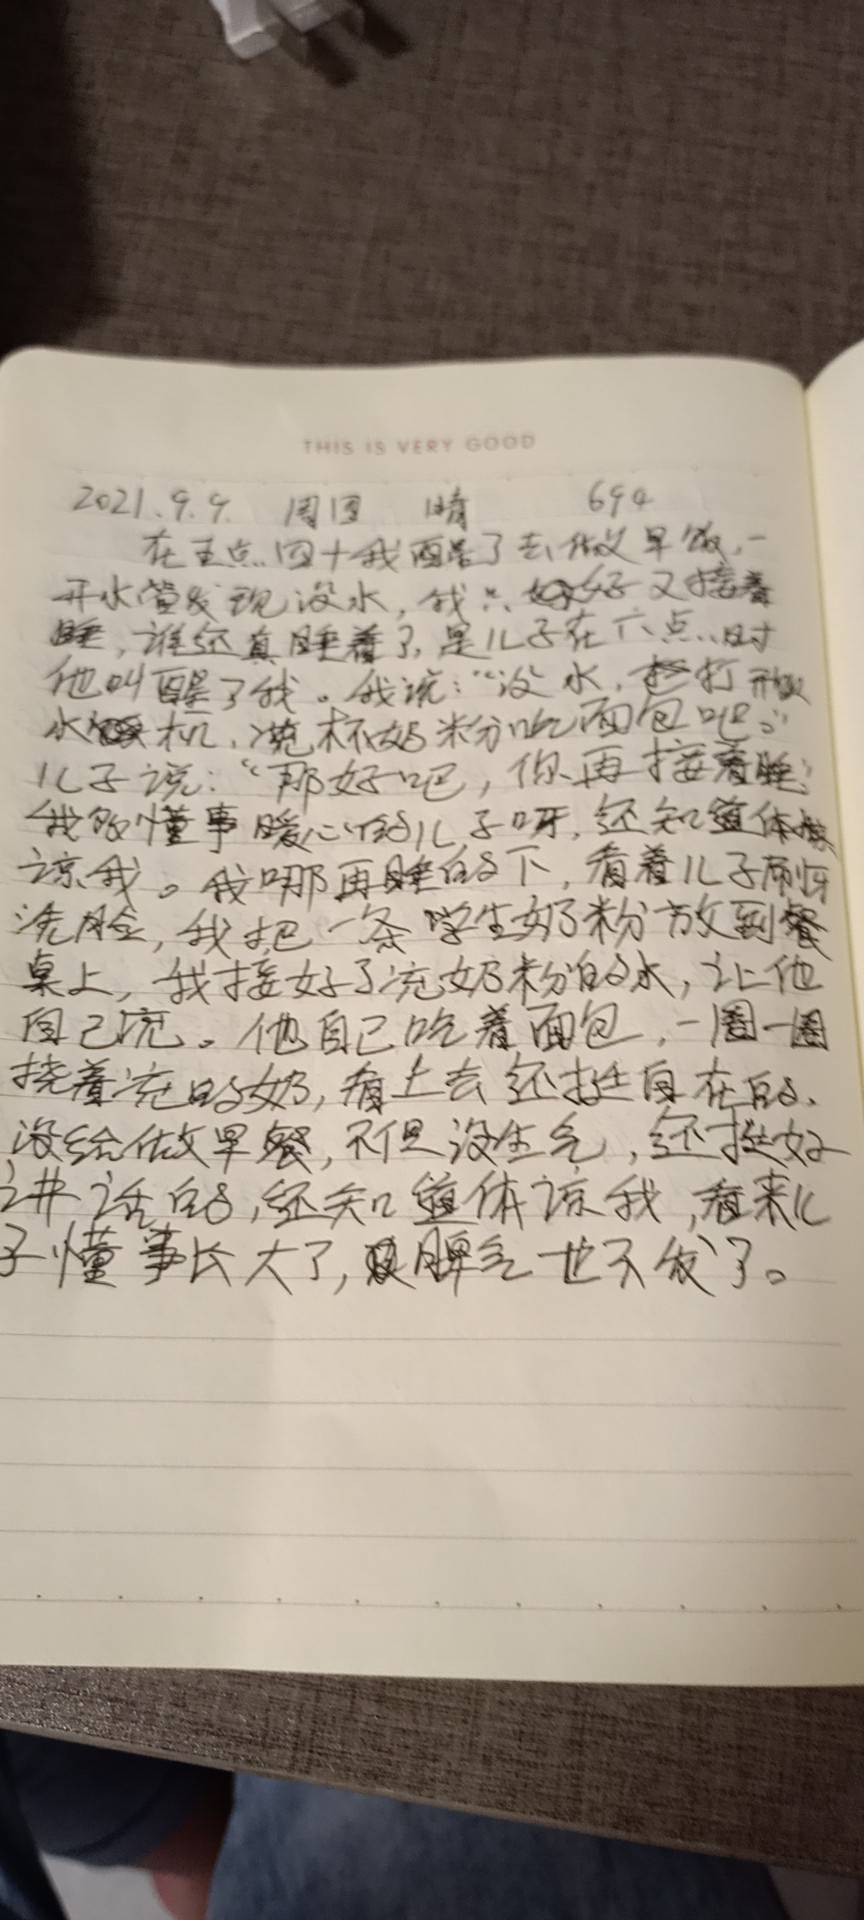 THIS IS VERY GOOD
2021.9.9. 周四 晴 694
在五点四十我醒了去做早饭,一
开水管发现没水,我只好又接着
睡,谁还真睡着了,是儿子在六点时
他叫醒了我。我说:“没水,打开
水机,冲杯奶粉吃面包吧。”
儿子说:“那好吧,你再接着睡”
我的懂事暖心的儿子呀,还知道体
谅我。我哪再睡的下,看着儿子刷牙
洗脸,我把一条学生奶粉放到餐
桌上,我接好了冲奶粉的水,让他
自己冲。他自己吃着面包,一圈一圈
挠着冲的奶,看上去还挺自在的、
没给做早餐,不但没生气,还挺好
讲话的,还知道体谅我,看来儿
子懂事长大了,脾气也不发了。